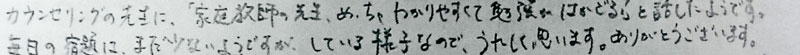 カウンセリングの先生に、「家庭教師の先生、めっちゃわかりやすくて勉強がはかどる」と話したようです。
毎日の宿題は、まだ少ないようですが、している様子なので、うれしく思います。ありがとうございます。